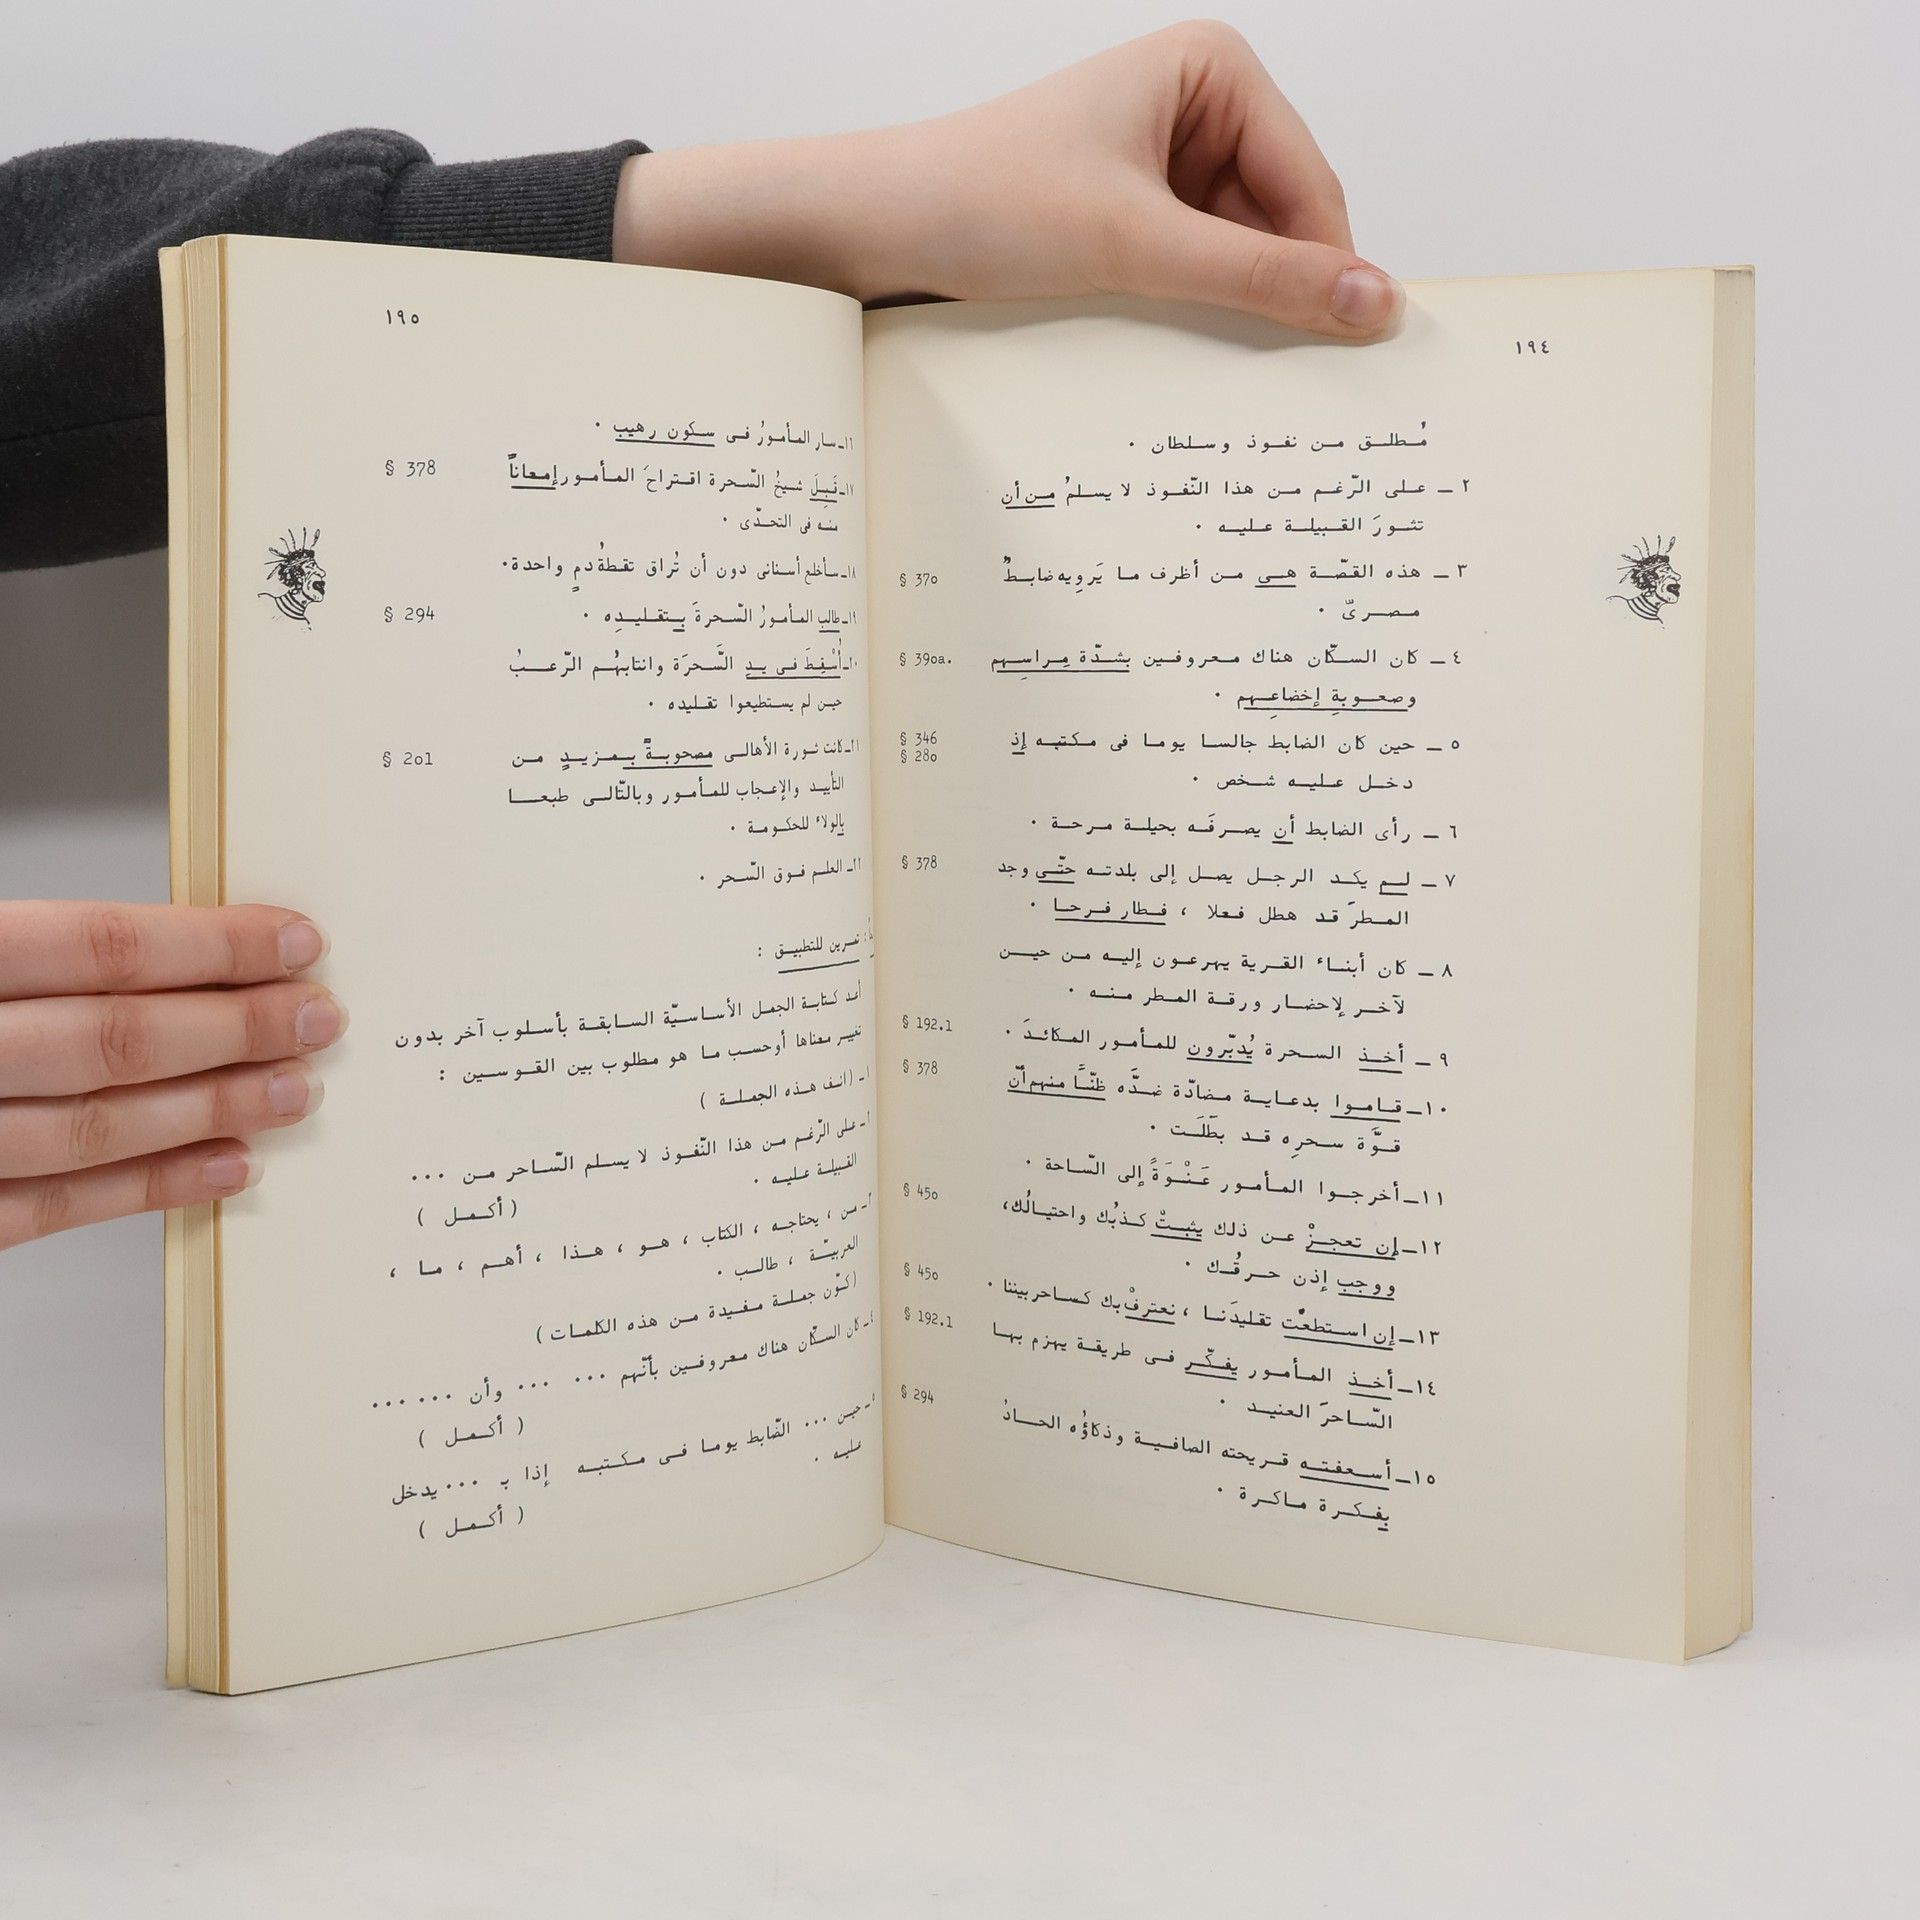 ١٩٤
مُطلق من نفوذ وسلطان .
٢ ـ على الرّغم من هذا النّفوذ لا يسلمُ من أن
تثورَ القبيلة عليه .
٣ ـ هذه القصّة هى من أظرف ما يَرويه ضابطٌ
§ 37o
مصرىّ .
٤ ـ كان السكّان هناك معروفين بشدّة مِراسِهم
§ 39oa.
وصعوبةِ إخضاعِهم .
٥ ـ حين كان الضابط جالسا يوما فى مكتبه إذ
§ 346
§ 28o
دخل عليه شخص .
٦ ـ رأى الضابط أن يصرفَه بحيلة مرحة .
٧ ـ لم يكد الرجل يصل إلى بلدته حتّى وجد
§ 378
المطرَ قد هطل فعلا ، فطار فرحا .
٨ ـ كان أبناء القرية يهرعون إليه من حين
لآخر لإحضار ورقة المطر منه .
٩ ـ أخذ السحرة يُدبّرون للمأمور المكائدَ .
§ 192.1
١٠ـ قاموا بدعاية مضادّة ضدَّه ظنّاً منهم أنّ
§ 378
قوَّة سحرِه قد بَطَلَت .
١١ـ أخرجوا المأمور عَنْوَةً إلى السّاحة .
١٢ـ إن تعجزْ عن ذلك يثبتْ كذبُك واحتيالُك،
§ 45o
ووجب إذن حرقُك .
١٣ـ إن استطعْتَ تقليدَنا ، نعترفْ بك كساحر بيننا .
§ 45o
١٤ـ أخذ المأمور يفكّر فى طريقة يهزم بها
§ 192.1
السّاحرَ العنيد .
١٥ـ أسعفته قريحته الصافية وذكاؤُه الحادُّ
§ 294
بفكرة ماكرة .
١٩٥
سار المأمورُ فى سكون رهيب .
قَبِلَ شيخُ السّحرة اقتراحَ المأمور إمعاناً
§ 378
منه فى التحدّى .
سأخلع أسنانى دون أن تُراق نقطةُ دمٍ واحدة .
طالب المأمورُ السّحرةَ بتقليدِه .
§ 294
أُسْقِطَ فى يدِ السَّحرَة وانتابهُم الرّعبُ
حين لم يستطيعوا تقليده .
كانت ثورة الأهالى مصحوبةً بمزيدٍ من
§ 2o1
التأييد والإعجاب للمأمور وبالتّالى طبعا
بالولاء للحكومة .
العلم فوق السّحر .
تمرين للتطبيق :
أعد كتابة الجمل الأساسيّة السابقة بأسلوب آخر بدون
تغيير معناها أوحسب ما هو مطلوب بين القوسين :
(انف هذه الجملة )
على الرّغم من هذا النّفوذ لا يسلم السّاحر من ...
القبيلة عليه .
( أكمل )
من ، يحتاجه ، الكتاب ، هو ، هذا ، أهم ، ما ،
العربيّة ، طالب .
(كوّن جملة مفيدة من هذه الكلمات )
٤ـ كان السكّان هناك معروفين بأنّهم ... ... وأن ... ...
( أكمل )
٥ـ حين ... الضّابط يوما فى مكتبه إذا بـ ... يدخل
عليه .
( أكمل )